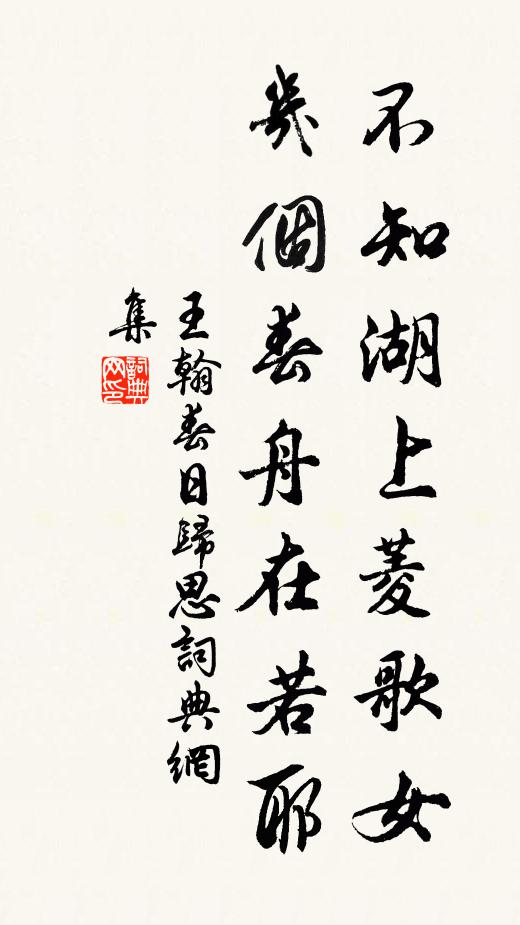 不知湖上菱歌女
幾個春舟在若耶
王翰春日歸思詞典網
集
詞典
网印